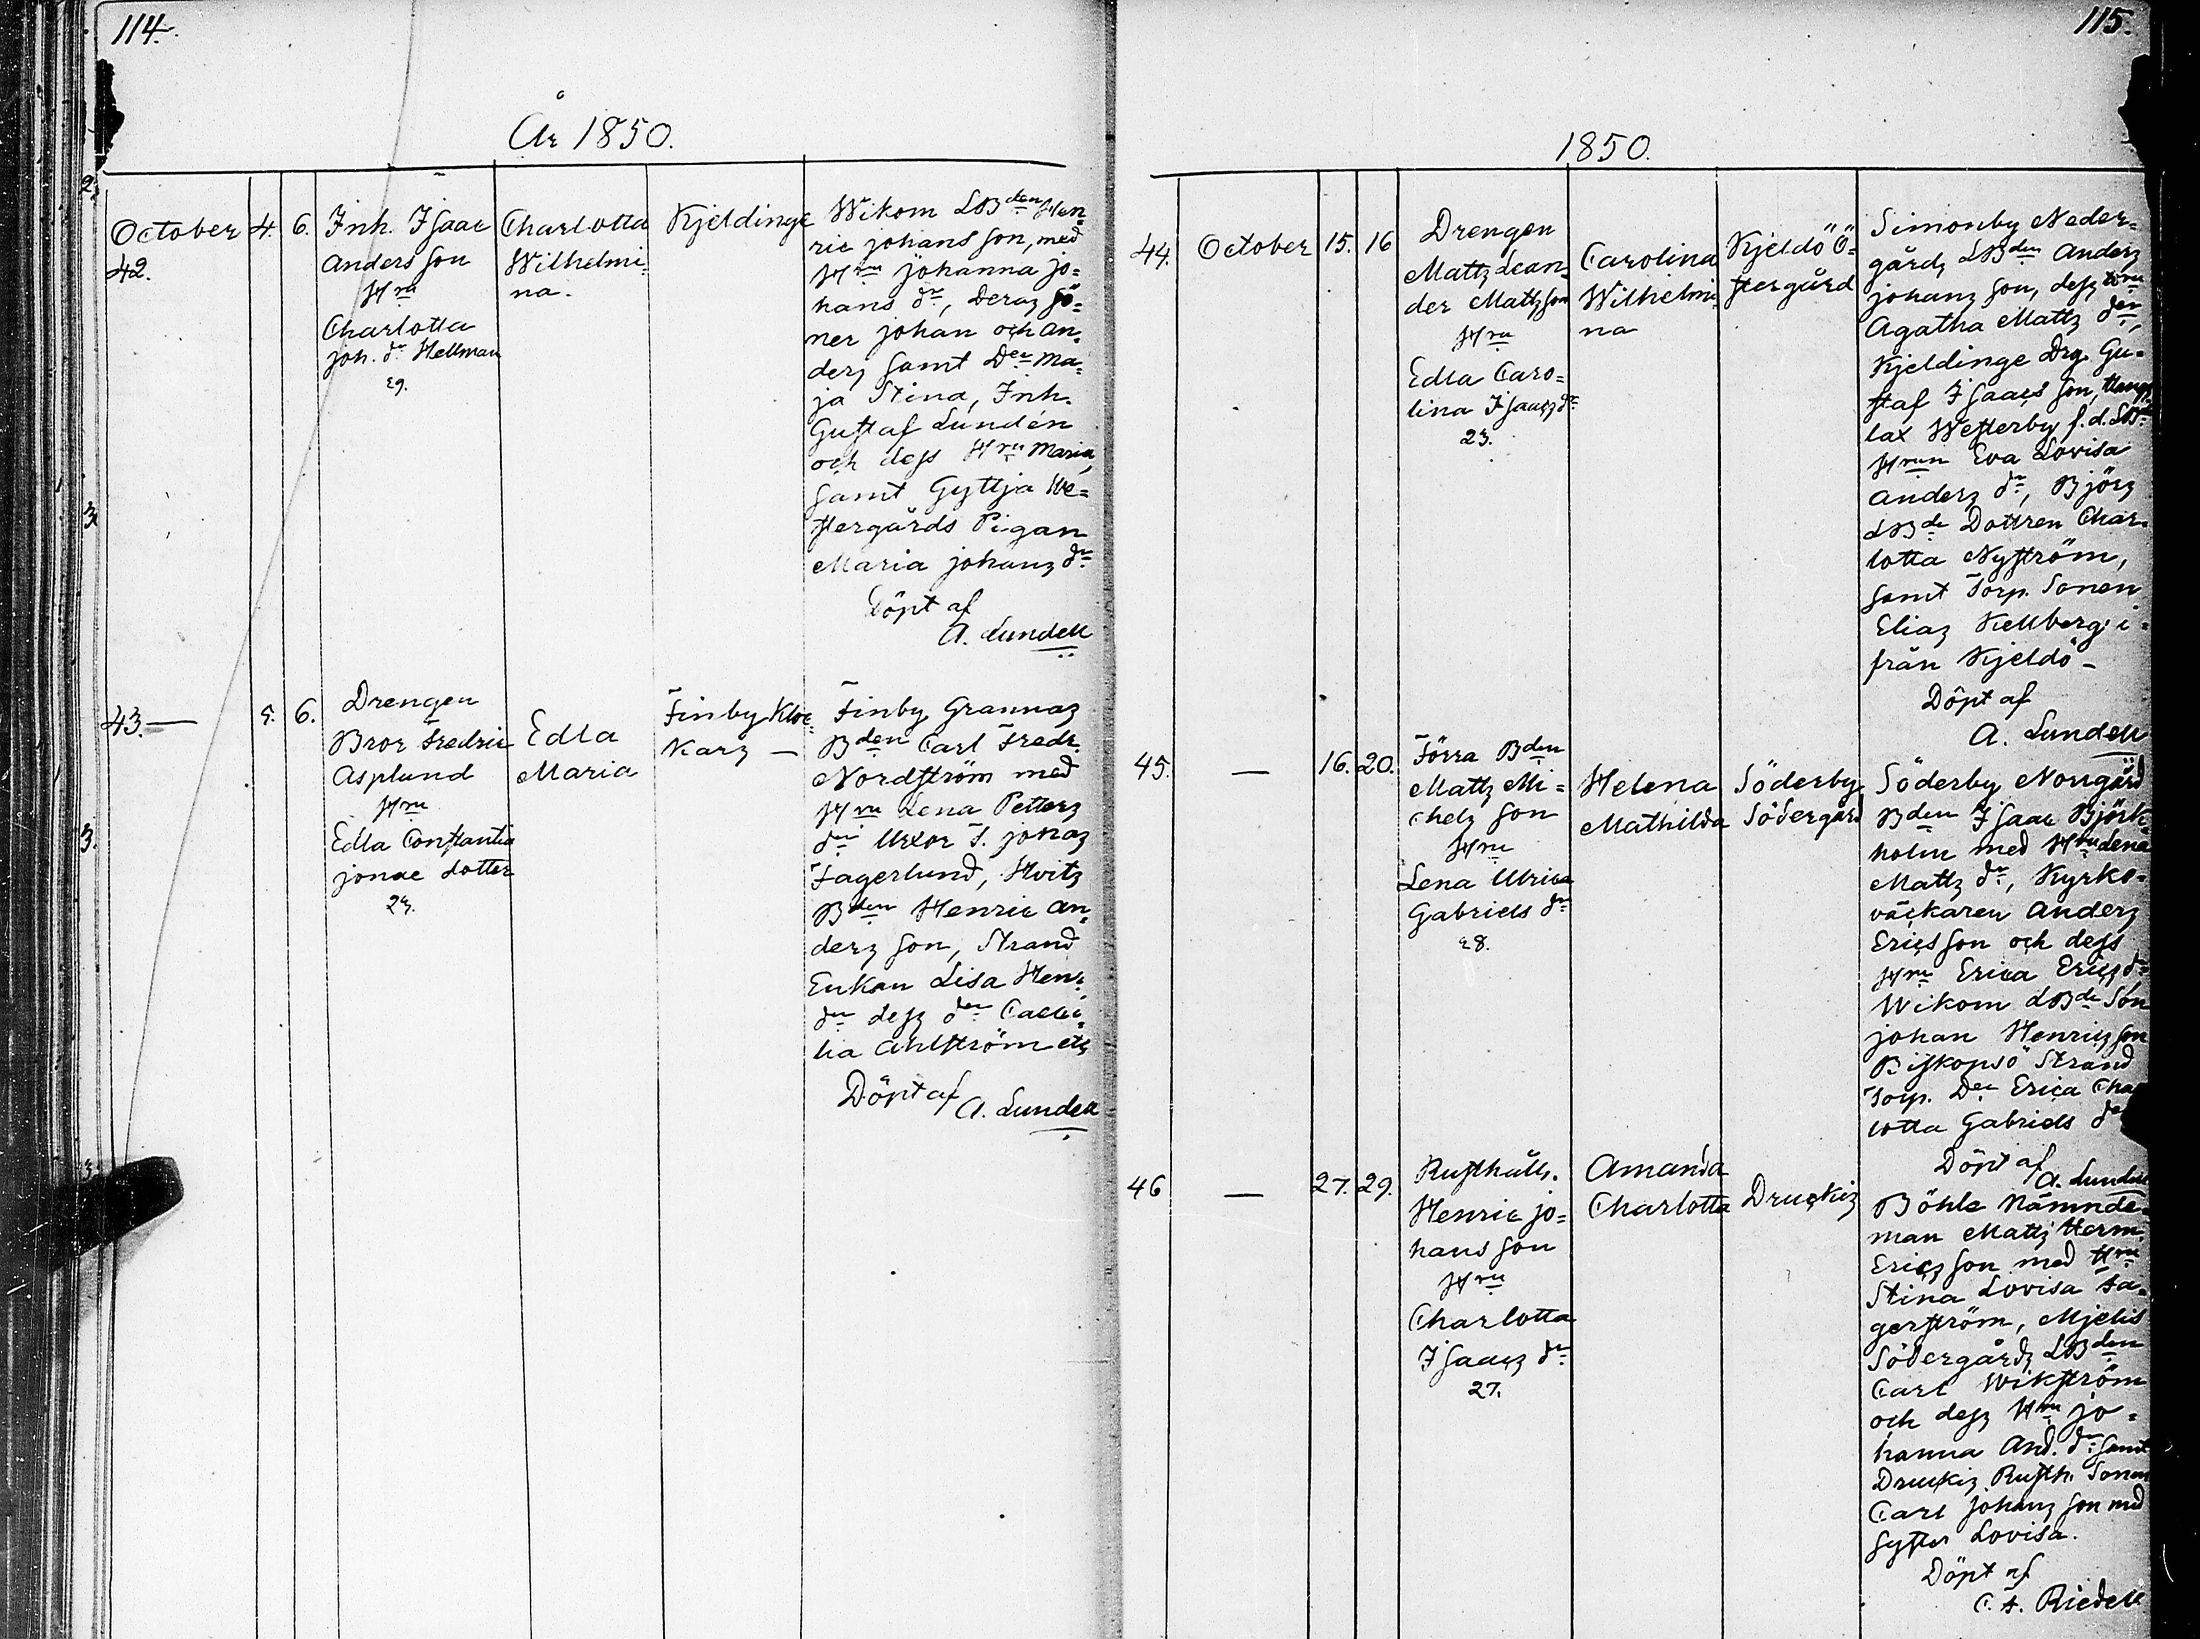 114.
År 1850.
October
42.
4.
6.
Inh. Isaac
Anders son
Hru
Charlotta
Joh. dr Hellman
29.
Charlotta
Wilhelmi-
na.
Kjeldinge
Wikom LBden Hen-
ric johans son, med
Hru johanna jo=
hans dr, deraz Sö-
ner johan och An-
derz samt Der Ma-
ja Stina, Inh.
Gustaf Lundén
och dess Hru Maria,
samt Gyttja We=
stergårds Pigan
Maria johanz dr
Döpt af
A. Lundell
43. —
5.
6.
Drengen
Bror Fredric
Asplund
Hru
Edla Constantia
jonae dotter
23.
Edla
Maria
Finby Kloc-
karz —
Finby Grannaz
Bden Carl Fredr.
Nordström med
Hru Lena Petterz
dr Uxor F. jonaz
Fagerlund, Hvitz
Bden Henric An-
derz son, Strand
Enkan Lisa Henr.
dr desz der Caeci-
lia Ahlström etc
Döpt af
A. Lundell
115.
1850.
44.
October
15.
16
Drengen
Mattz Lean-
der Mattzson
Hru
Edla Caro=
lina Isaacz dr
23.
Carolina
Wilhelmi-
na
Kjeldö Ö-
stergård
Simonby Neder-
gårdz LBden Anderz
johanz son, desz Hru
Agatha Mattz der,
Kjeldinge Drg. Gu-
staf Isaacs son,
lax Westerby f.d. LBd
Hrun Eva Lovisa
Anderz dr, Björz
LBde Dottren Char-
lotta Nyström,
samt Torp. Sonen
Eliaz Kellberg i-
från Kjeldö —
Döpt af
A. Lundell
45.
—
16.
20.
Förra Bden
Mattz Mi=
chelz son
Hru
Lena Ulrica
Gabriels dr
28.
Helena
Mathilda
Söderby
Södergård
Söderby Norrgård
Bden Isaac Björk-
holm med Hru Lena
Mattz dr, Kyrko-
väckaren Anderz
Erics son och dess
Hru Erica Ericz dr
Wikom LBde Son
johan Henricz son
Biskopsö Strand
Torp. Der Erica Char
lotta Gabriels dr
Döpt af
A. Lundell
46
—
27.
29.
Rusthåll.
Henric jo=
hans son
Hru
Charlotta
Isaacz dr
27.
Amanda
Charlotta
Druckiz
Böhle Nämnde-
man Mattz Herm.
Ericz son med Hru
Stina Lovisa Fa-
gerström, Mjelis
Södergårdz LBden
Carl Wikström
och desz Hru jo-
hanna And. dr samt
Druckiz Rusth. Sonen
Carl Johanz son med
Syster Lovisa.
Döpt af
C. F. Riedell